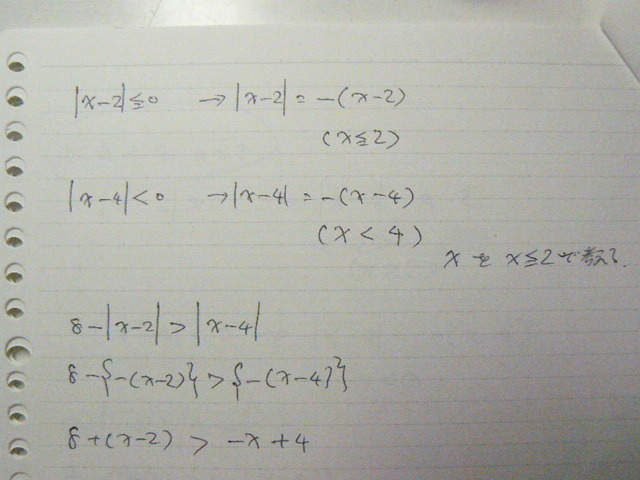 |x-2|≦0 → |x-2| = -(x-2)
(x≦2)
|x-4|<0 → |x-4| = -(x-4)
(x < 4)
xを x≦2で考える
8-|x-2| > |x-4|
8-{-(x-2)} > {-(x-4)}
8+(x-2) > -x+4